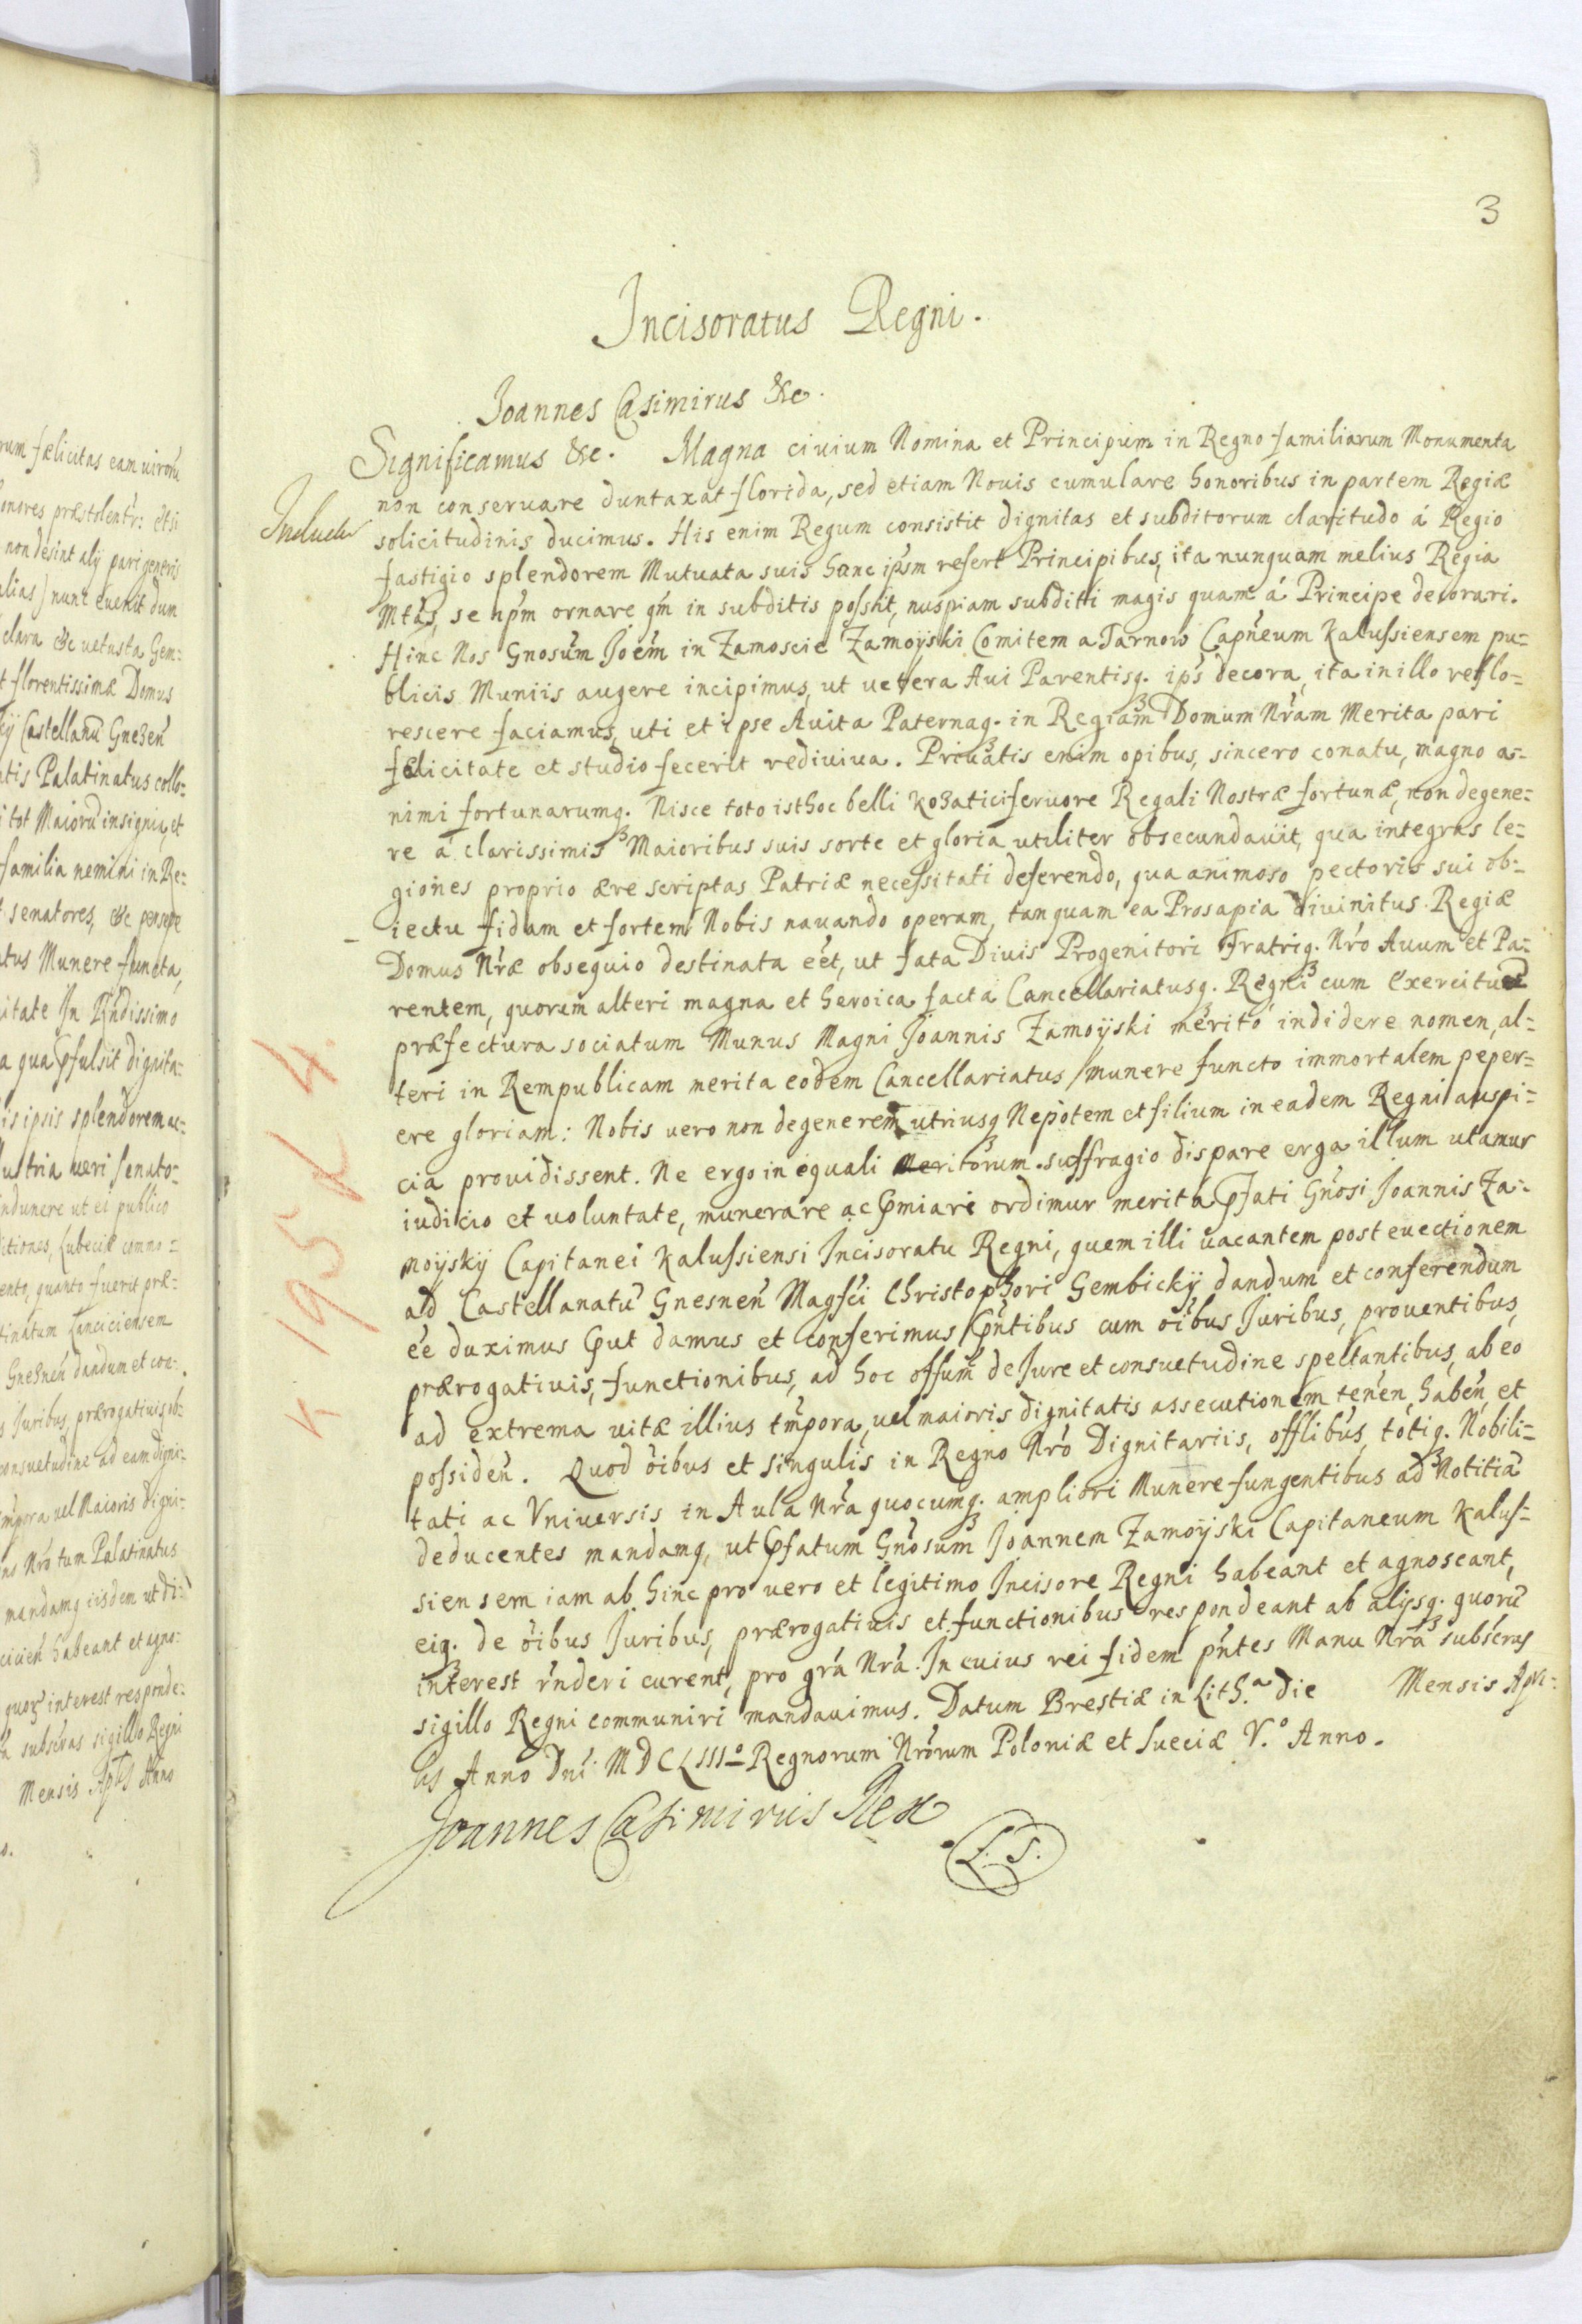 3
Incisoratus Regni.
Joannes Casimirus &c.
Significamus &c. Magna civium Nomina et Principum in Regno familiarum Monumenta
non conseruare duntaxat florida, sed etiam Nouis cumulare honoribus in partem Regiæ
solicitudinis ducimus. His enim Regum consistit dignitas et subditorum claritudo á Regio
fastigio splendorem Mutuata suis hanc ipsm refert Principibus, ita nunquam melius Regia
Mtas, se npm ornare qm in subditis possit, nuspiam subditi magis quam á Principe decorari.
Hinc Nos Gnosum Joem in Zamoscie Zamoÿski Comitem a Tarnow Capneum Kalussiensem pu=
blicis Muniis augere incipimus, ut vetera Aui Parentisq. ips decora, ita in illo reflo=
rescere faciamus, uti et ipse Auita Paternaq. in Regiam Domum Nram Merita pari
fælicitate et studio fecerit rediuiua. Priuatis enim opibus, sincero conatu, magno a=
nimi fortunarumq. Nisce toto isthoc belli Kozatici feruore Regali Nostræ fortunæ, non degene=
re á clarissimis Maioribus suis sorte et gloria utiliter obsecundauit, qua integras le=
giones proprio ære scriptas Patriæ necessitati deferendo, qua animoso pectoris sui ob=
iectu fidam et fortem Nobis nauando operam, tanquam ea Prosapia diuinitus Regiæ
Domus Nræ obsequio destinata eet, ut fata Diuis Progenitori Fratriq. Nro Auum et Pa=
rentem, quorum alteri magna et heroica facta Cancellariatusq. Regni cum Exercitus
præfectura sociatum Munus Magni Joannis Zamoÿski merito indidere nomen, al=
teri in Rempublicam merita eodem Cancellariatus munere functo immortalem peper=
ere gloriam: Nobis vero non degenerem utriusq Nepotem et filium in eadem Regni auspi=
cia prouidissent. Ne ergo in equali Meritorum suffragio dispare erga illum utamur
iudicio et uoluntate, munerare ac pmiari ordimur merita pfati Gnosi Joannis Za=
moÿskÿ Capitanei Kalussiensi Incisoratu Regni, quem illi uacantem post euectionem
ad Castellanatu Gnesnen Magfci Christophori Gembickÿ dandum et conferendum
ee duximus put damus et conferimus pntibus cum oibus Juribus, prouentibus,
prærogatiuis, functionibus, ad hoc offum de Jure et consuetudine spectantibus, ab eo
ad extrema uitæ illius tmpora, uel maioris dignitatis assecutionem tenen, haben, et
possiden. Quod oibus et singulis in Regno Nro Dignitariis, offlibus, totiq. Nobili=
tati ac Vniuersis in Aula Nra quocumq. ampliori Munere fungentibus ad Notitia
deducentes mandamq, ut pfatum Gnosum Joannem Zamoÿski Capitaneum Kalus=
siensem iam ab hinc pro uero et legitimo Incisore Regni habeant et agnoscant,
eiq. de oibus Juribus, prærogatiuis et functionibus respondeant ab alijsq. quoru
interest rnderi curent, pro gra Nra. In cuius rei fidem pntes Manu Nra subscras
sigillo Regni communiri mandauimus. Datum Brestiæ in Lith.a die Mensis Apri=
lis Anno Dni MDCLIIIo Regnorum Nrorum Poloniæ et Sueciæ V.o Anno.
Joannes Casimirus Rex
L. S.
K 195 d 4.
rum fælicitas eam uiroru
onores præstolentr: etsi
non desint alÿ pari generis
alias) nunc euenit dum
clara &c uetusta Gem=
t florentissimæ Domus
kÿ Castellanu Gnezen
tis Palatinatus collo=
i tot Maioru insignia, et
familia nemini in Re=
senatores, &c
atus Munere functa,
itate In Rndissimo
a qua pfulsit dignita=
is ipsis splendorem ac=
ustria ueri senato=
ndunere ut ei publico
ento, quanto fuerit præ=
tinatum Lanciciensem
Gnesnen dandum et con=
s Juribus, prærogatiuis ob=
consuetudine ad eam digni=
mpora uel Maioris digni=
no Nro tum Palatinatus
mandamq iisdem ut di=
cicien habeant et agno=
interest responde=
a subscras sigillo Regni
Mensis Aplis Anno